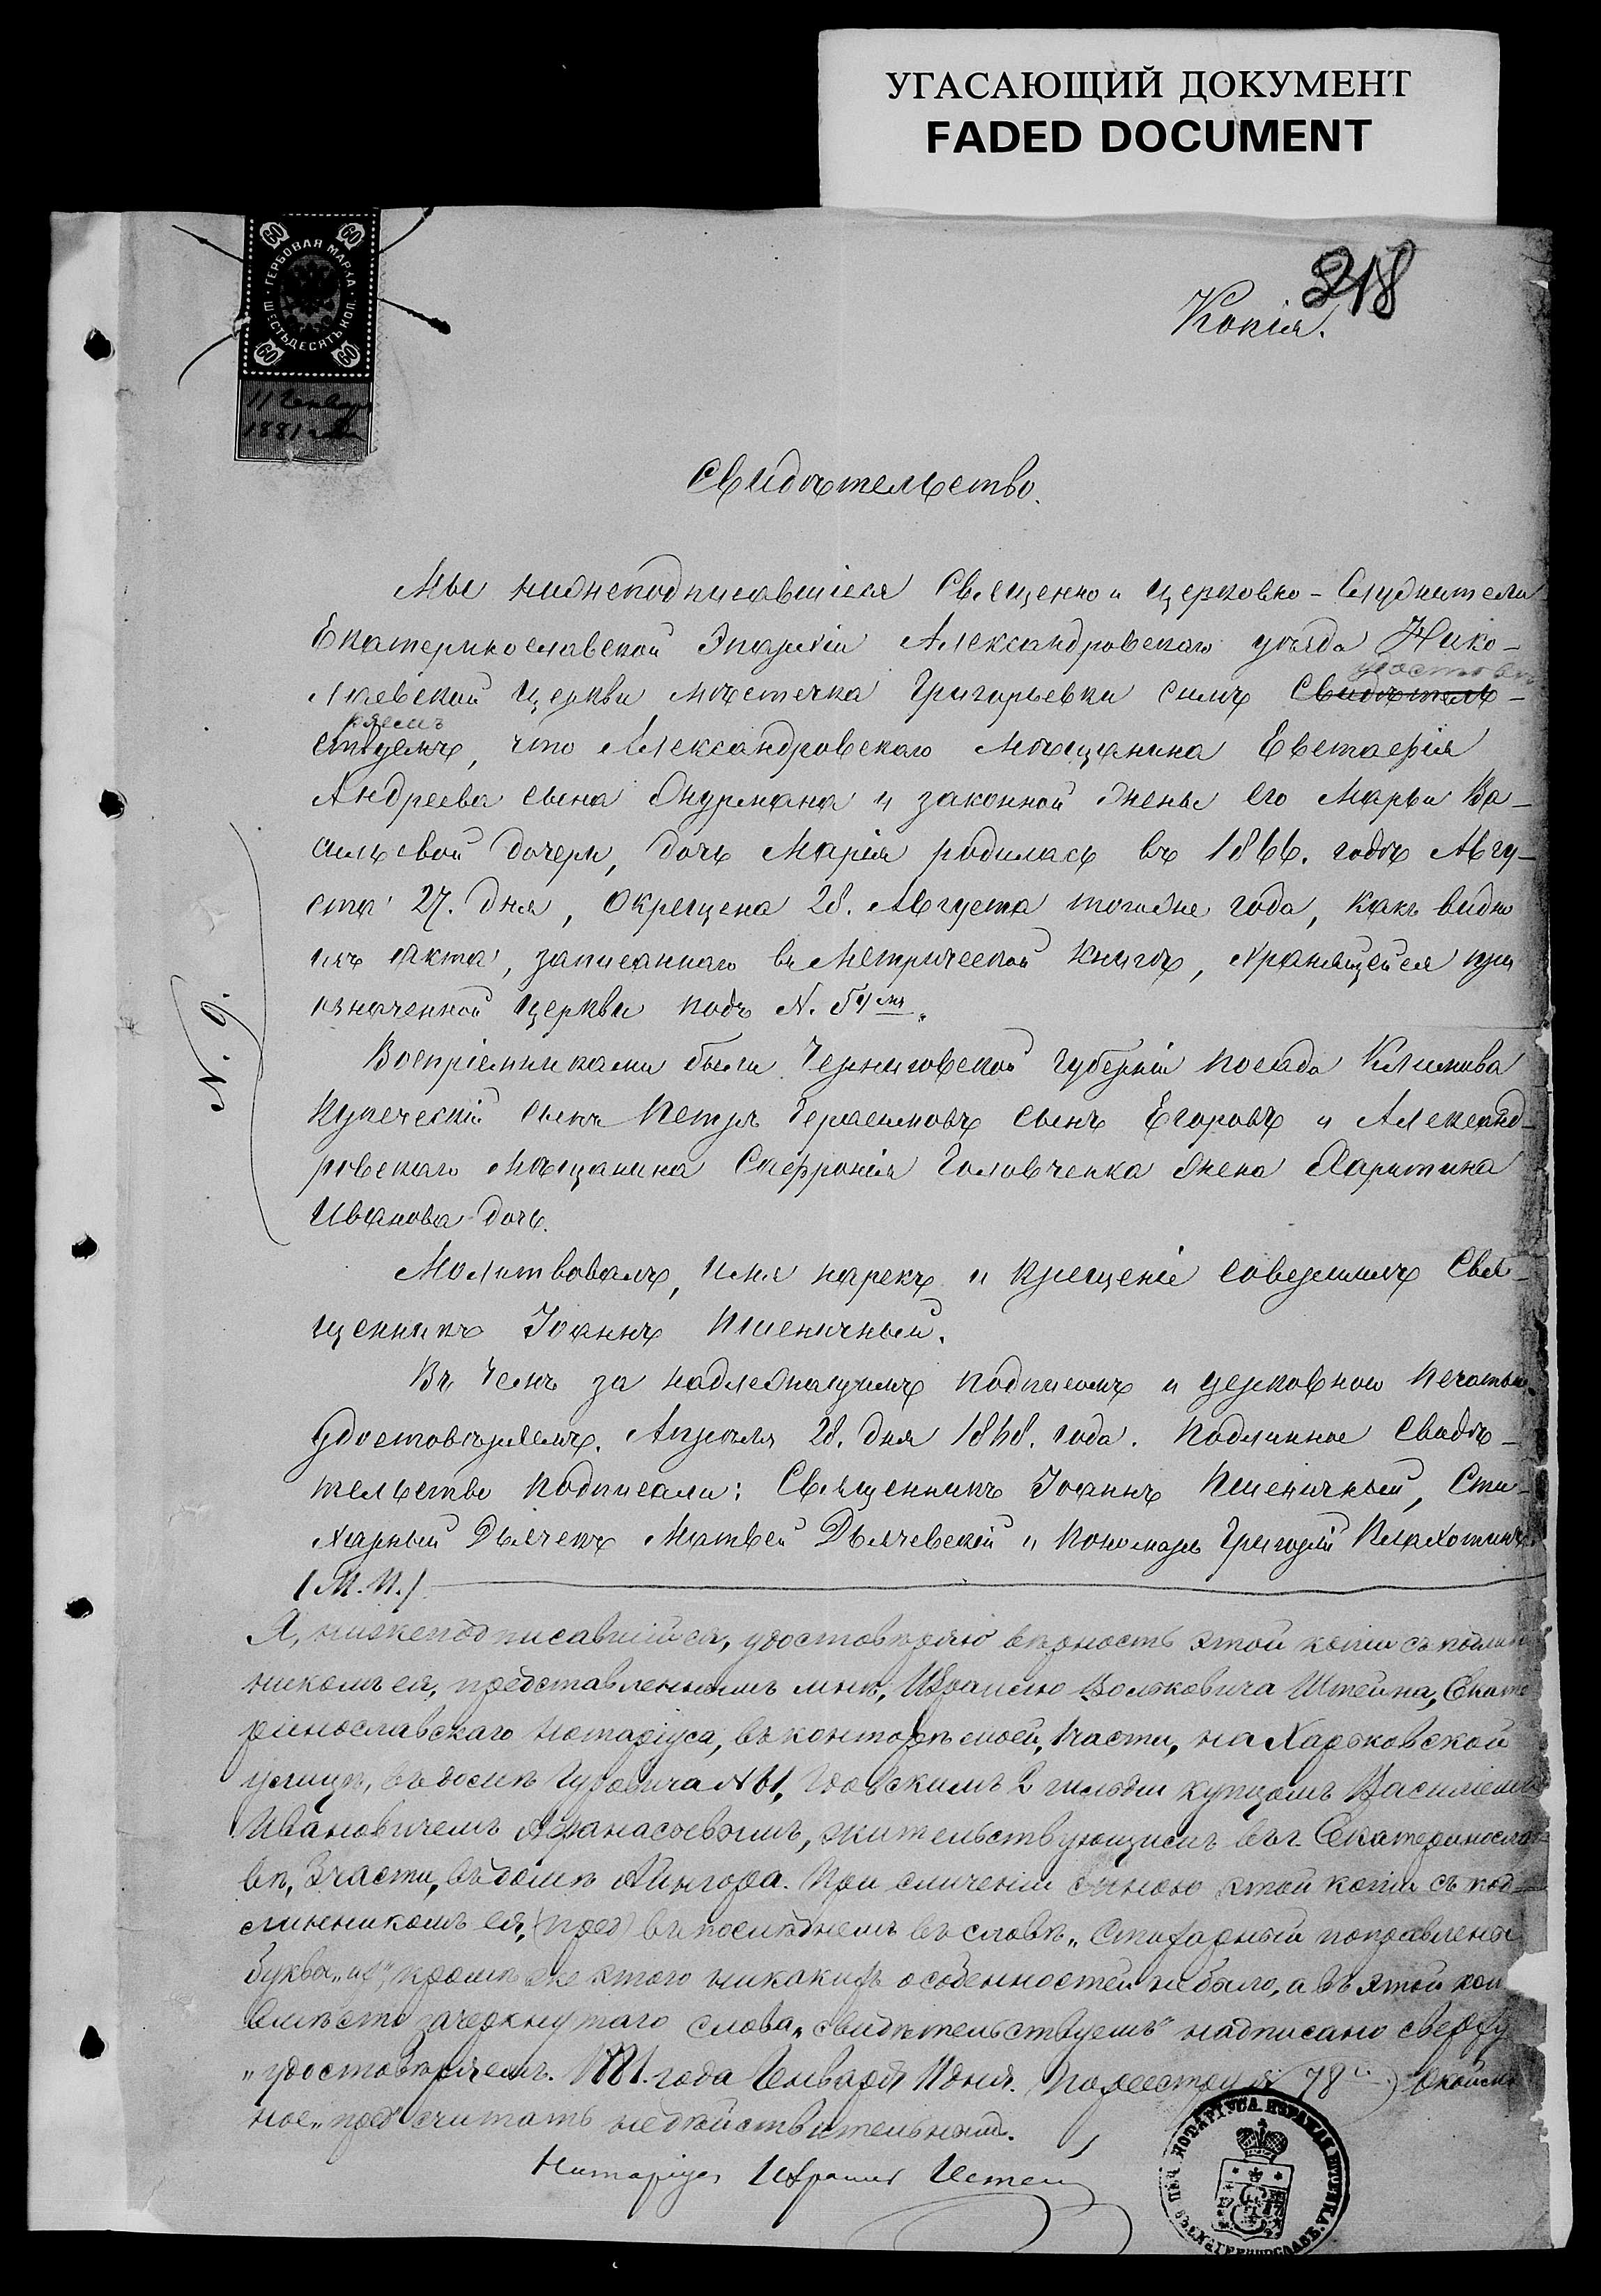 УГАСАЮЩИЙ ДОКУМЕНТ
FADED DOCUMENT
60 60
ГЕРБОВАЯ МАРКА
ШЕСТЬДЕСЯТЪ КОП.
60 60
11 Генваря
1881 года
218
Копія.
Свидѣтельство.
Мы нижеподписавшіеся Священно и церковно-служители
Екатеринославской Эпархіи Александровскаго уѣзда Нико-
удостовѣ
лаевской церкви мѣстечка Григорьевки симъ Свидѣтель-
ряемъ
ствуемъ, что Александровскаго мѣщанина Евстафія
Андреева сына и законной жены его Марьи Ва-
сильевой дочери, дочь Марія родилась въ 1866. годѣ Авгу-
ста 27. дня, окрещена 28. Августа тогоже года, какъ видно
изъ акта, записаннаго въ Метрической книгѣ, хранящейся при
означенной церкви подъ N.
N. 9.
Воспріемниками были Черниговской губерніи посада Климова
купеческій сынъ Петръ Герасимовъ сынъ Егоровъ и Александ-
ровскаго мѣщанина Софронія Головченка жена Харитина
Иванова дочь.
Молитвовалъ, имя нарекъ и крещеніе совершилъ Свя-
щенникъ Іоаннъ Пшеничный.
Въ чемъ за надлежащимъ подписомъ и церковною печатью
удостовѣряемъ. Апрѣля 28. дня 1868. года. Подлинное свидѣ-
тельство подписали: Священникъ Іоаннъ Пшеничный, Сти-
харный Дьячекъ Матвей Дьячевскій и Пономарь Григорій Плахотинъ
/М.П./
Я, нижеподписавшійся, удостовѣряю вѣрность этой копіи съ подлин
никомъ ея, представленнымъ мнѣ, Израилю Вольковича Штейна, Екате
ринославскаго Нотаріуса, въ конторѣ моей, 1 части, на Харьковской
улицѣ, въ домѣ Гуровича N 61, 2 гильдіи купцомъ Василіемъ
Ивановичемъ Афанасьевымъ, жительствующимъ въ г. Екатериносла-
вѣ, 3 части, въ домѣ. При сличеніи мною этой копіи съ под-
линникомъ ея, (пред) въ послѣднемъ въ словѣ „Стихарный поправлены
буквы, кромѣ же этого никакихъ особенностей не было, а въ этой коп
вмѣсто зачеркнутаго слова „свидѣтельствуемъ" надписано сверху
„удостовѣряемъ. 1881. года Генваря 11 дня. По реестру N 78
ное „пред" считать недѣйствительнымъ.
Нотаріусъ Израиль Штейнъ